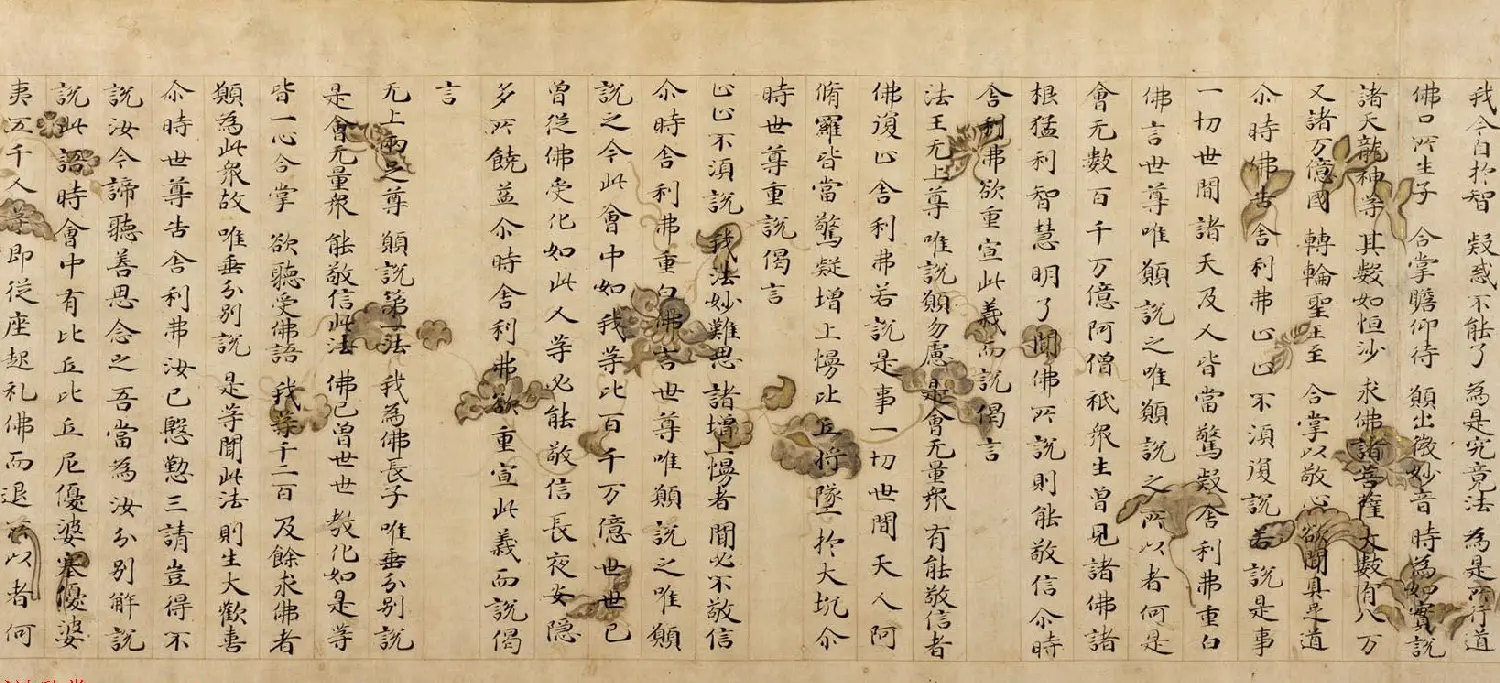 我今自扵智 疑惑不能了 為是究竟法 為是所行道
佛口所生子 合掌瞻仰待 願出微妙音 時為如實說
諸天龍神等 其數如恒沙 求佛諸菩薩 大數有八万
又諸万億國 轉輪聖王至 合掌以敬心 欲聞具足道
尒時佛告舍利弗止止不須復說若說是事
一切世間諸天及人皆當驚疑舍利弗重白
佛言世尊唯願說之唯願說之所以者何是
會无數百千万億阿僧祇眾生曾見諸佛諸
根猛利智慧明了聞佛所說則能敬信尒時
舍利弗欲重宣此義而說偈言
法王无上尊 唯說願勿慮 是會无量眾 有能敬信者
佛復止舍利弗若說是事一切世間天人阿
脩羅皆當驚疑增上慢比丘將墜扵大坑尒
時世尊重說偈言
止止不須說 我法妙難思 諸增上慢者 聞必不敬信
尒時舍利弗重白佛言世尊唯願說之唯願
說之今此會中如我等比百千万億世世已
曾從佛受化如此人等必能敬信長夜安隱
多所饒益尒時舍利弗欲重宣此義而說偈
言
无上兩足尊 願說第一法 我為佛長子 唯垂分別說
是會无量眾 能敬信此法 佛已曾世世 教化如是等
皆一心合掌 欲聽受佛語 我等千二百 及餘求佛者
願為此眾故 唯垂分別說 是等聞此法 則生大歡喜
尒時世尊告舍利弗汝已慇懃三請豈得不
說汝今諦聽善思念之吾當為汝分別解說
說此語時會中有比丘比丘尼優婆塞優婆
夷五千人等即從座起礼佛而退所以者何